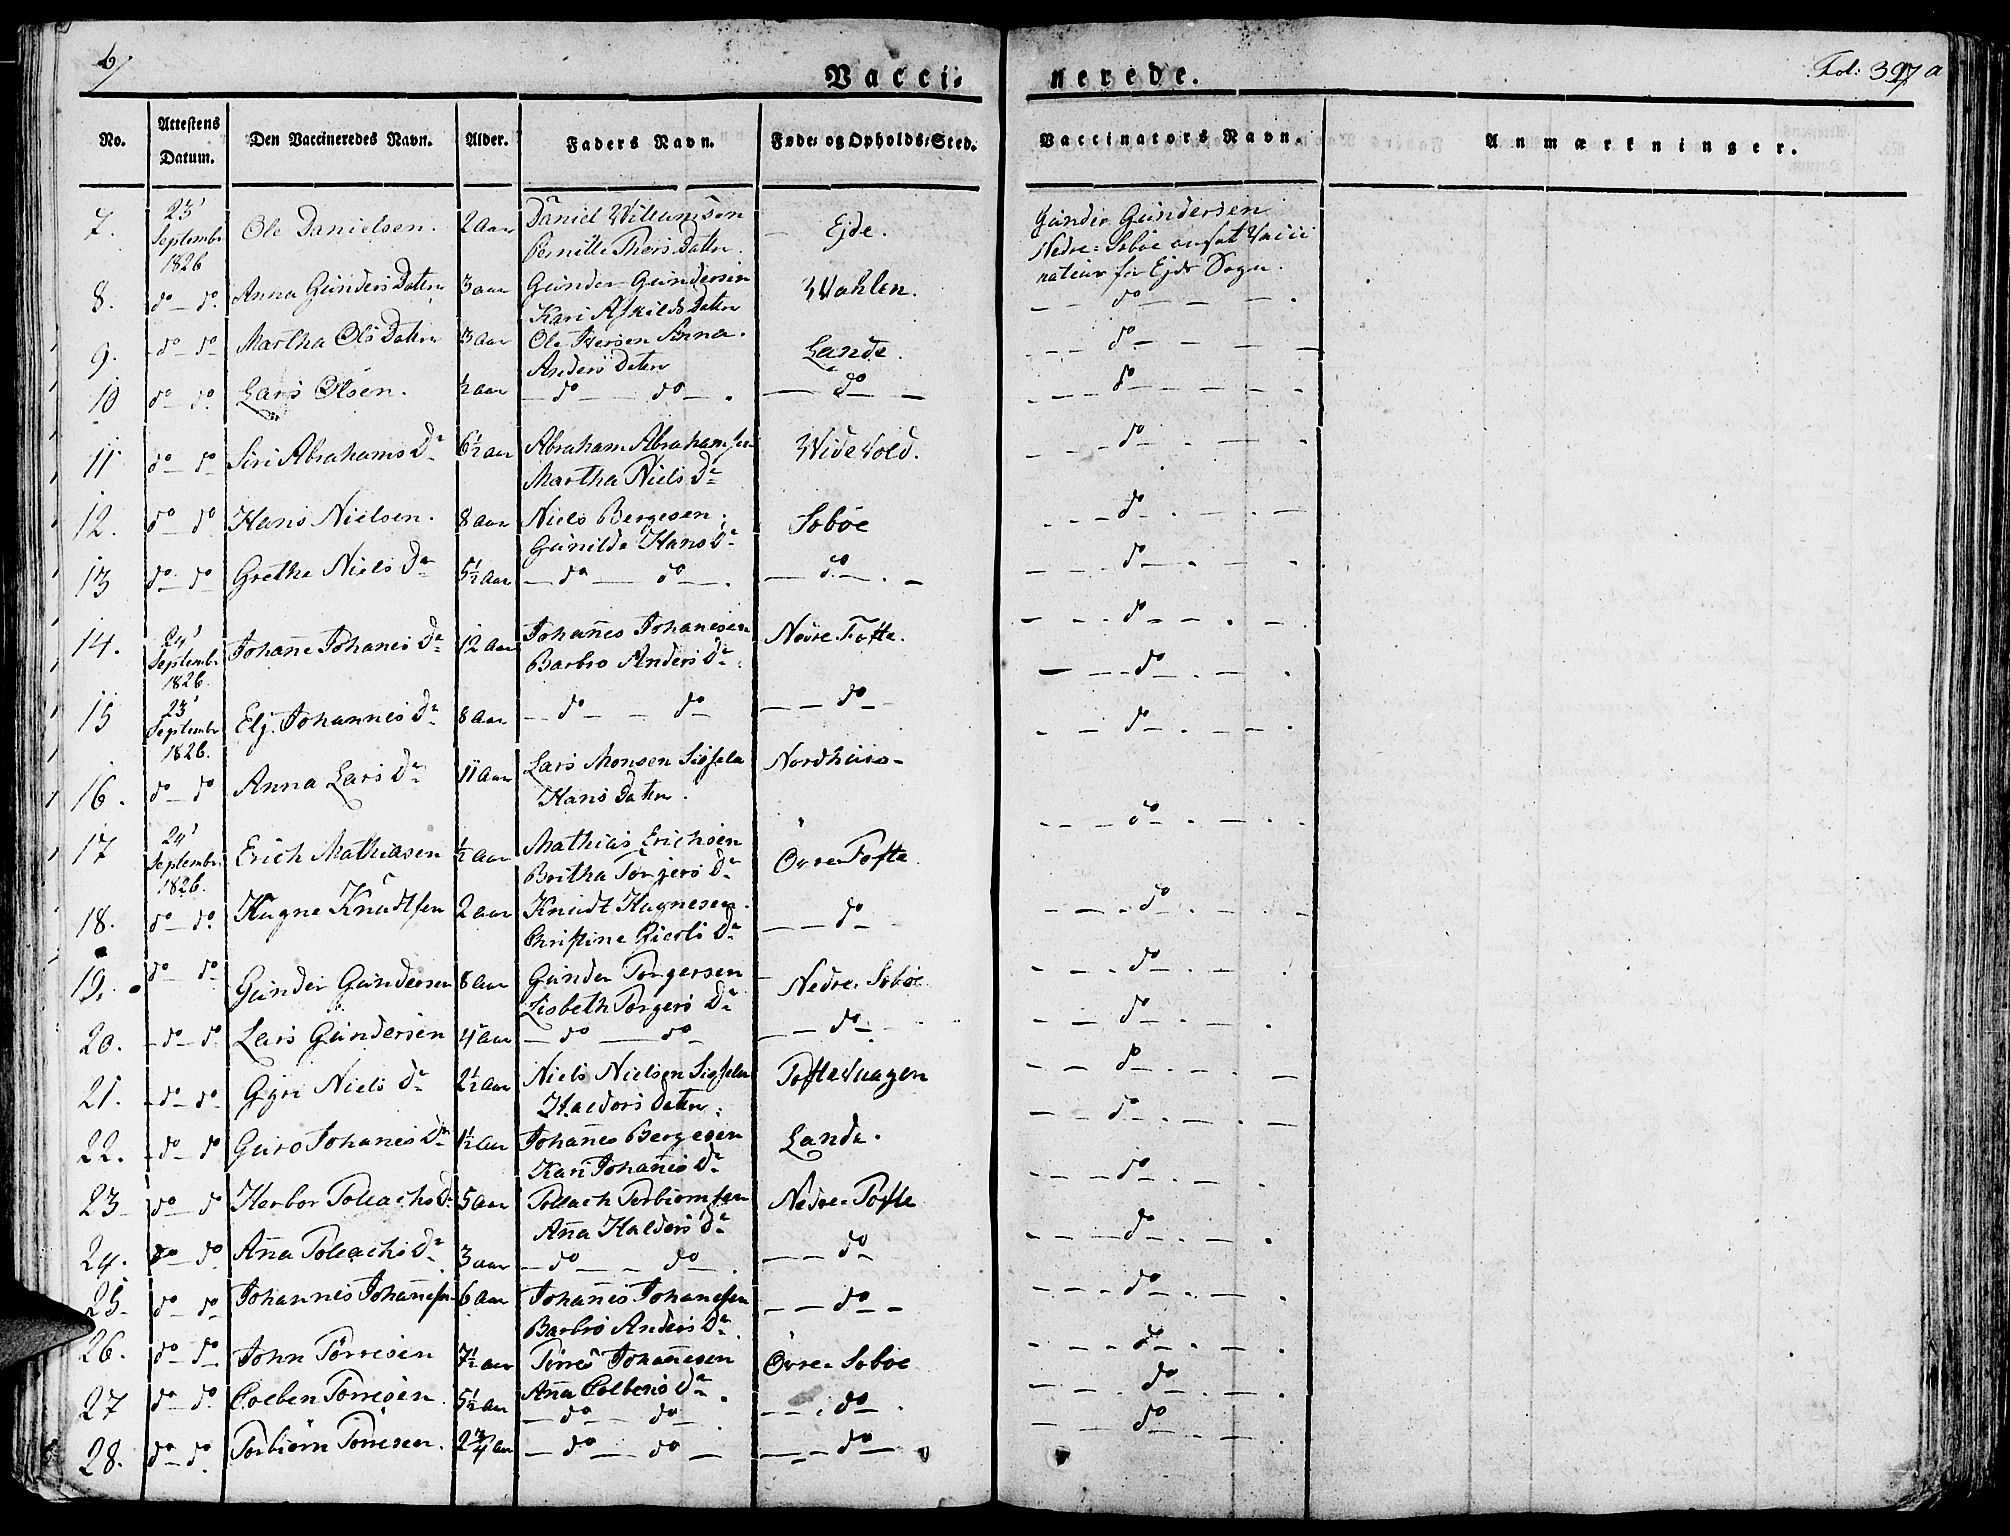 6/
Fol: 397 a
Vacci-nerede.
No. Attestens Datum. Den Vaccineredes Navn. Alder. Faders Navn. Føde- og Opholds-Sted. Vaccinators Navn. Anmærkninger.
7. 23' Septembr 1826 Ole Danielsen. 2 aar Daniel Willumsen Pernille Thors Datter. Ejde. Gunder Gundersen Nedre-Søbøe ansat Vaccinateur for Ejds Sogn.
8. do - do. Anna Gunders Datter 3 aar Gunder Gundersen Kari Askilds Datter Wahlen. - - do - - - .
9. - do - do Martha Ols Datter 3 aar Ole Iversen Anna Anders Datter Lande. - - - do - - -
10 do - do. Lars Olsen. ½ aar - do - do - . - do - - - - do - - - .
11 do - do Siri Abrahams Dr 6½ aar Abraham Abrahamsen Martha Niels Dr Widevold. - - - do - . - .
12. do do Hans Nielsen. 8 aar Niels Bergesen, Gunilde Hans Dr Søbøe - - - do - . - .
13 do - do Grethe Niels Dr 5½ aar - do - do - . - do - . - - - - do - . - .
14. 24' Septembr 1826. Johanne Johannes Dr 12 aar Johannes Johannesen Barbro Anders Dr Nedre Tofte. - - - do - . - .
15 23' Septembr 1826. Elj. Johannes Dr 8 aar - do - - do - - - do - - - - do - . - .
16. do - do Anna Lars Dr 11 aar Lars Monsen Sigsela Hans Datter. Nordhuus - - - - do - . - .
17 24' Septembr 1826. Erich Mathiasen ½ aar Mathias Erichsen Britha Torgers Dr Øvre Tofte - - - do - . - .
18. do - do. Hagne Knudtsen 2 aar Knudt Hagnesen. Christine Giertz Dr - - do - - - - do - . - . -
19. do - do. Gunder Gundersen 8 aar Gunder Torgersen Lisbeth Torgers Dr Nedre Søbøe - - - do - . - .
20. - do - do. Lars Gundersen 4 aar - do - do - - - do - . - - - do - . - .
21. - do - do. Gyri Niels Dr 2½ aar Niels Nielsen Sigsela Haldors Datter. Toftehaugen - - do - . - . -
22. - do - do Guro Johannes Dr 1½ aar Johannes Bergesen Kari Johannes Dr Lande. - - - do - . - .
23 do - do Herbor Tollachs Dr 5 aar Tollach Torbiørnsen Anna Haldors Dr Nedre Tofte - - - do - . - .
24. do - do. Anna Tollachs Dr 3 aar - do - - do - . - - do - - - - do - . - .
25. do - do Johannes Johannesen 6 aar Johannes Johannesen Barbro Anders Dr - - do - - - - - do - . - .
26. do - do John Tørresen 7½ aar Tørres Johannesen Anna Colbens Dr Øvre Søbøe - - - do - . - .
27 do - do. Colben Tørresen. 5½ aar - do - do - . - - do - . - - - do - . - .
28. do - do. Torbiørn Tørresen. 2¾ aar - do - do - - - do - - - do - . - .